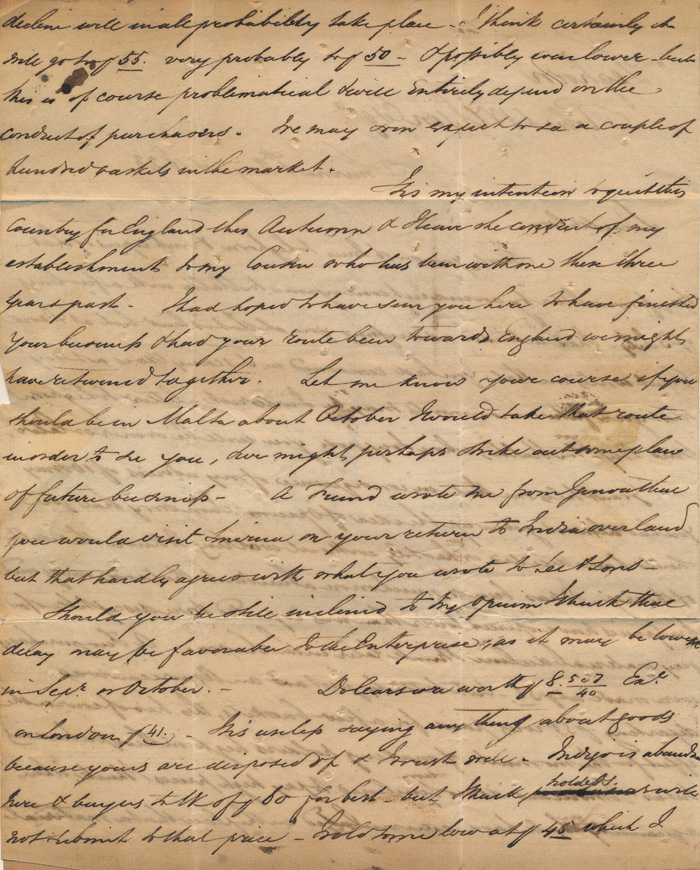 decline will in all probability take place - I think certainly it
will go to f 55. very probably to f 50 - & possibly even lower - but
this is of course problematical & will entirely depend on the
conduct of purchasers. We may soon expect to see a couple of
hundred baskets in the market.
It is my intention to quit this
Country for England this Autumn & leave the conduct of my
establishment to my Cousin who has been with me these three
years past - I had hoped to have seen you here to have finished
your business & had your route been towards England we might
have returned together. Let me know your course if you
should be in Malta about October I would take that route
in order to see you, & we might perhaps strike out some plan
of future business - A Friend wrote me from Genoa that
you would visit Smirna on your return to India overland
but that hardly agrees with what you wrote to Lee & Sons -
Should you be still inclined to try opium I think that
delay may be favorable to the Enterprise, as it may be lower
in Sepr or October. - Dollars are worth f 8. Exe.
on London f 41. - It is useless saying anything about goods
because yours are disposed of & I trust well. - Indigo is abundant
here & buyers talk of f 60 for best but I think holders will
not submit to that price - I sold some low at f 45 which I